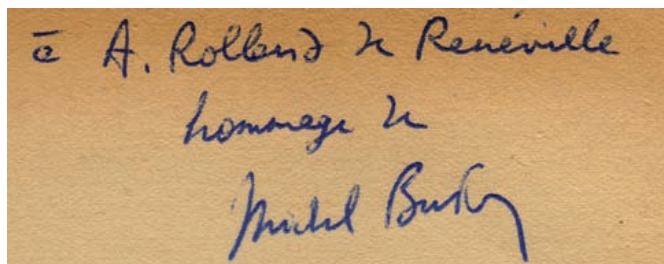 à A. Rolland de Renéville
hommage de
Michel Butor